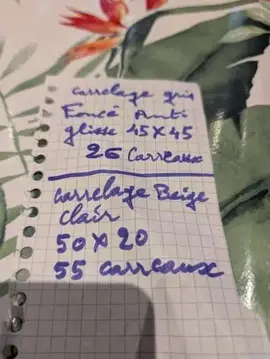 carrelage gris
Foncé Anti
glisse 45X45
26 Carreaux
carrelage Beige
clair
50X20
55 carreaux